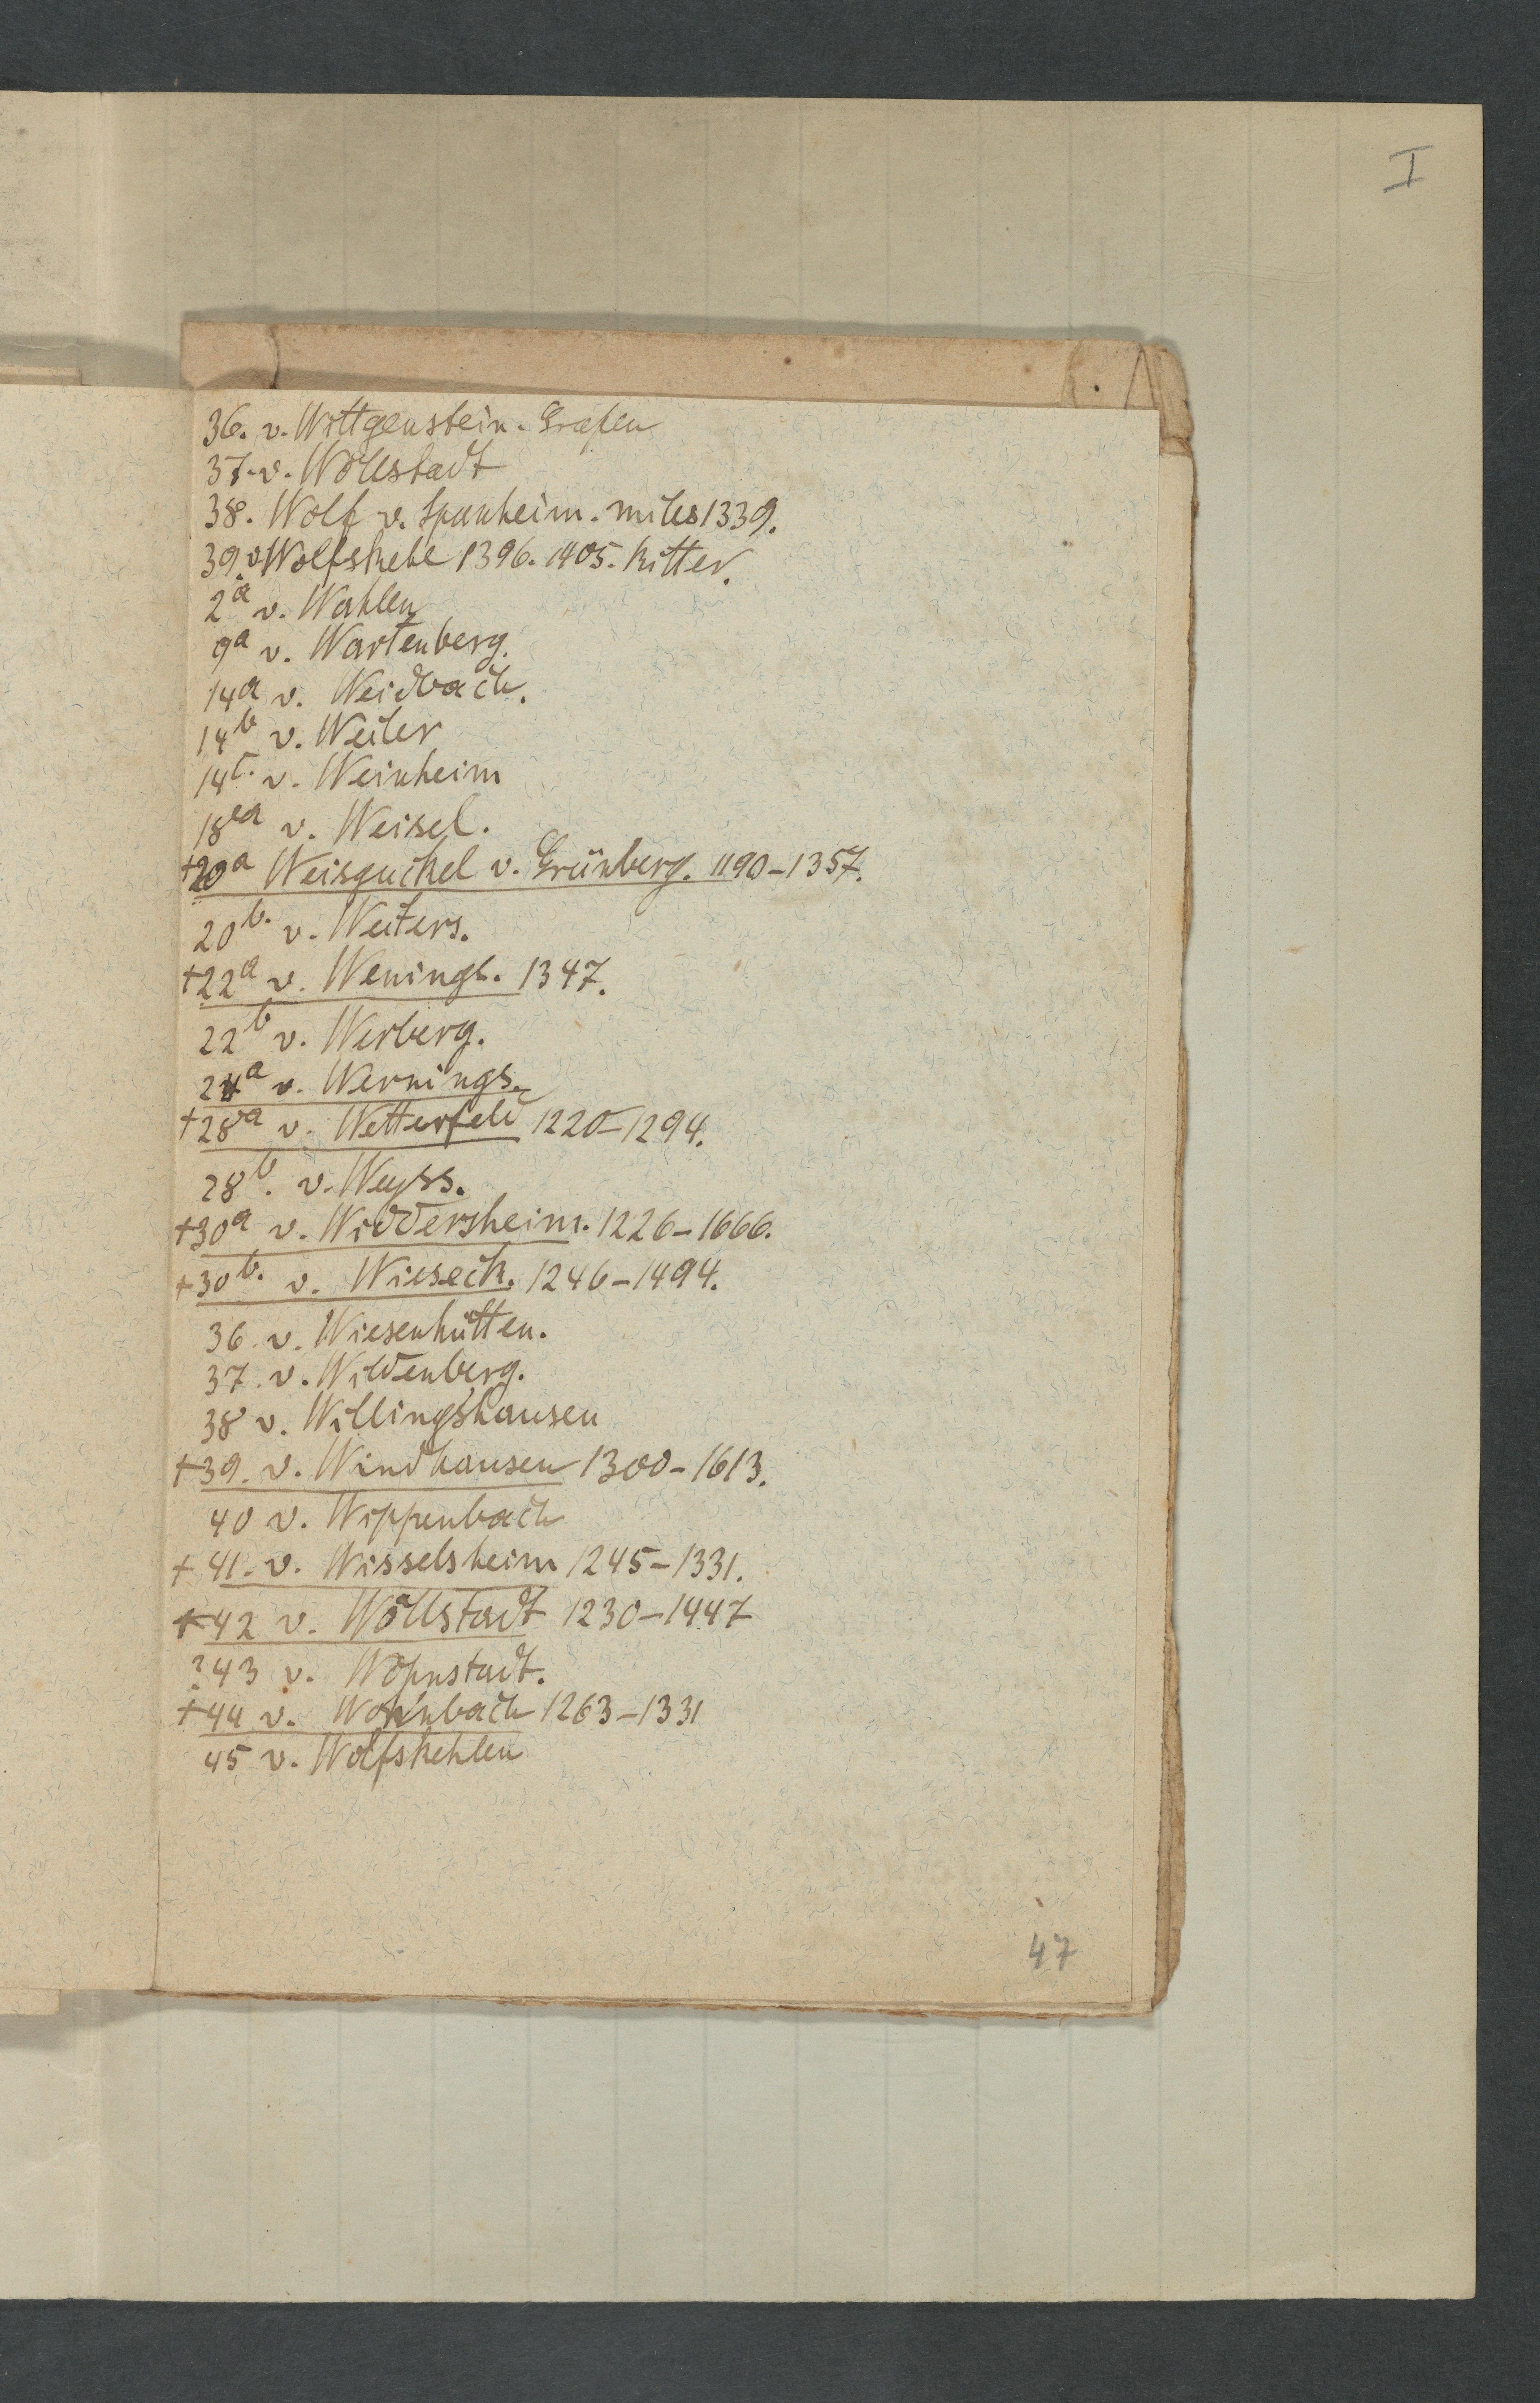 I
36. v. Wittgenstein. Grafen
37. v. Wöllstadt
38. Wolf v. Spanheim. miles 1339.
39. v Wolfskehl 1396. 1405. Ritter.
2a v. Wahlen
9a v. Wartenberg.
14a v. Weidbach.
14b v. Weiler
14c. v. Weinheim
18ea v. Weisel.
+20a Weisguckel v. Grünberg. 1190-1357.
20b. v. Weiters.
+22a v. Wenings. 1347.
22b v. Werberg.
24a v. Wernings.
+28a v. Wetterfeld 1220-1294.
28b. v. Weyss.
+30a v. Widdersheim. 1226-1666.
+30b. v. Wieseck. 1246-1494.
36. v. Wiesenhütten.
37. v. Wildenberg.
38 v. Willingshausen
+39. v. Windhausen 1300-1613.
40 v. Wippenbach
+ 41. v. Wisselsheim 1245-1331.
+ 42 v. Wöllstadt 1230-1447
? 43 v. Wopnstadt.
+44 v. Wohnbach 1263-1331
45 v. Wolfskehlen
47